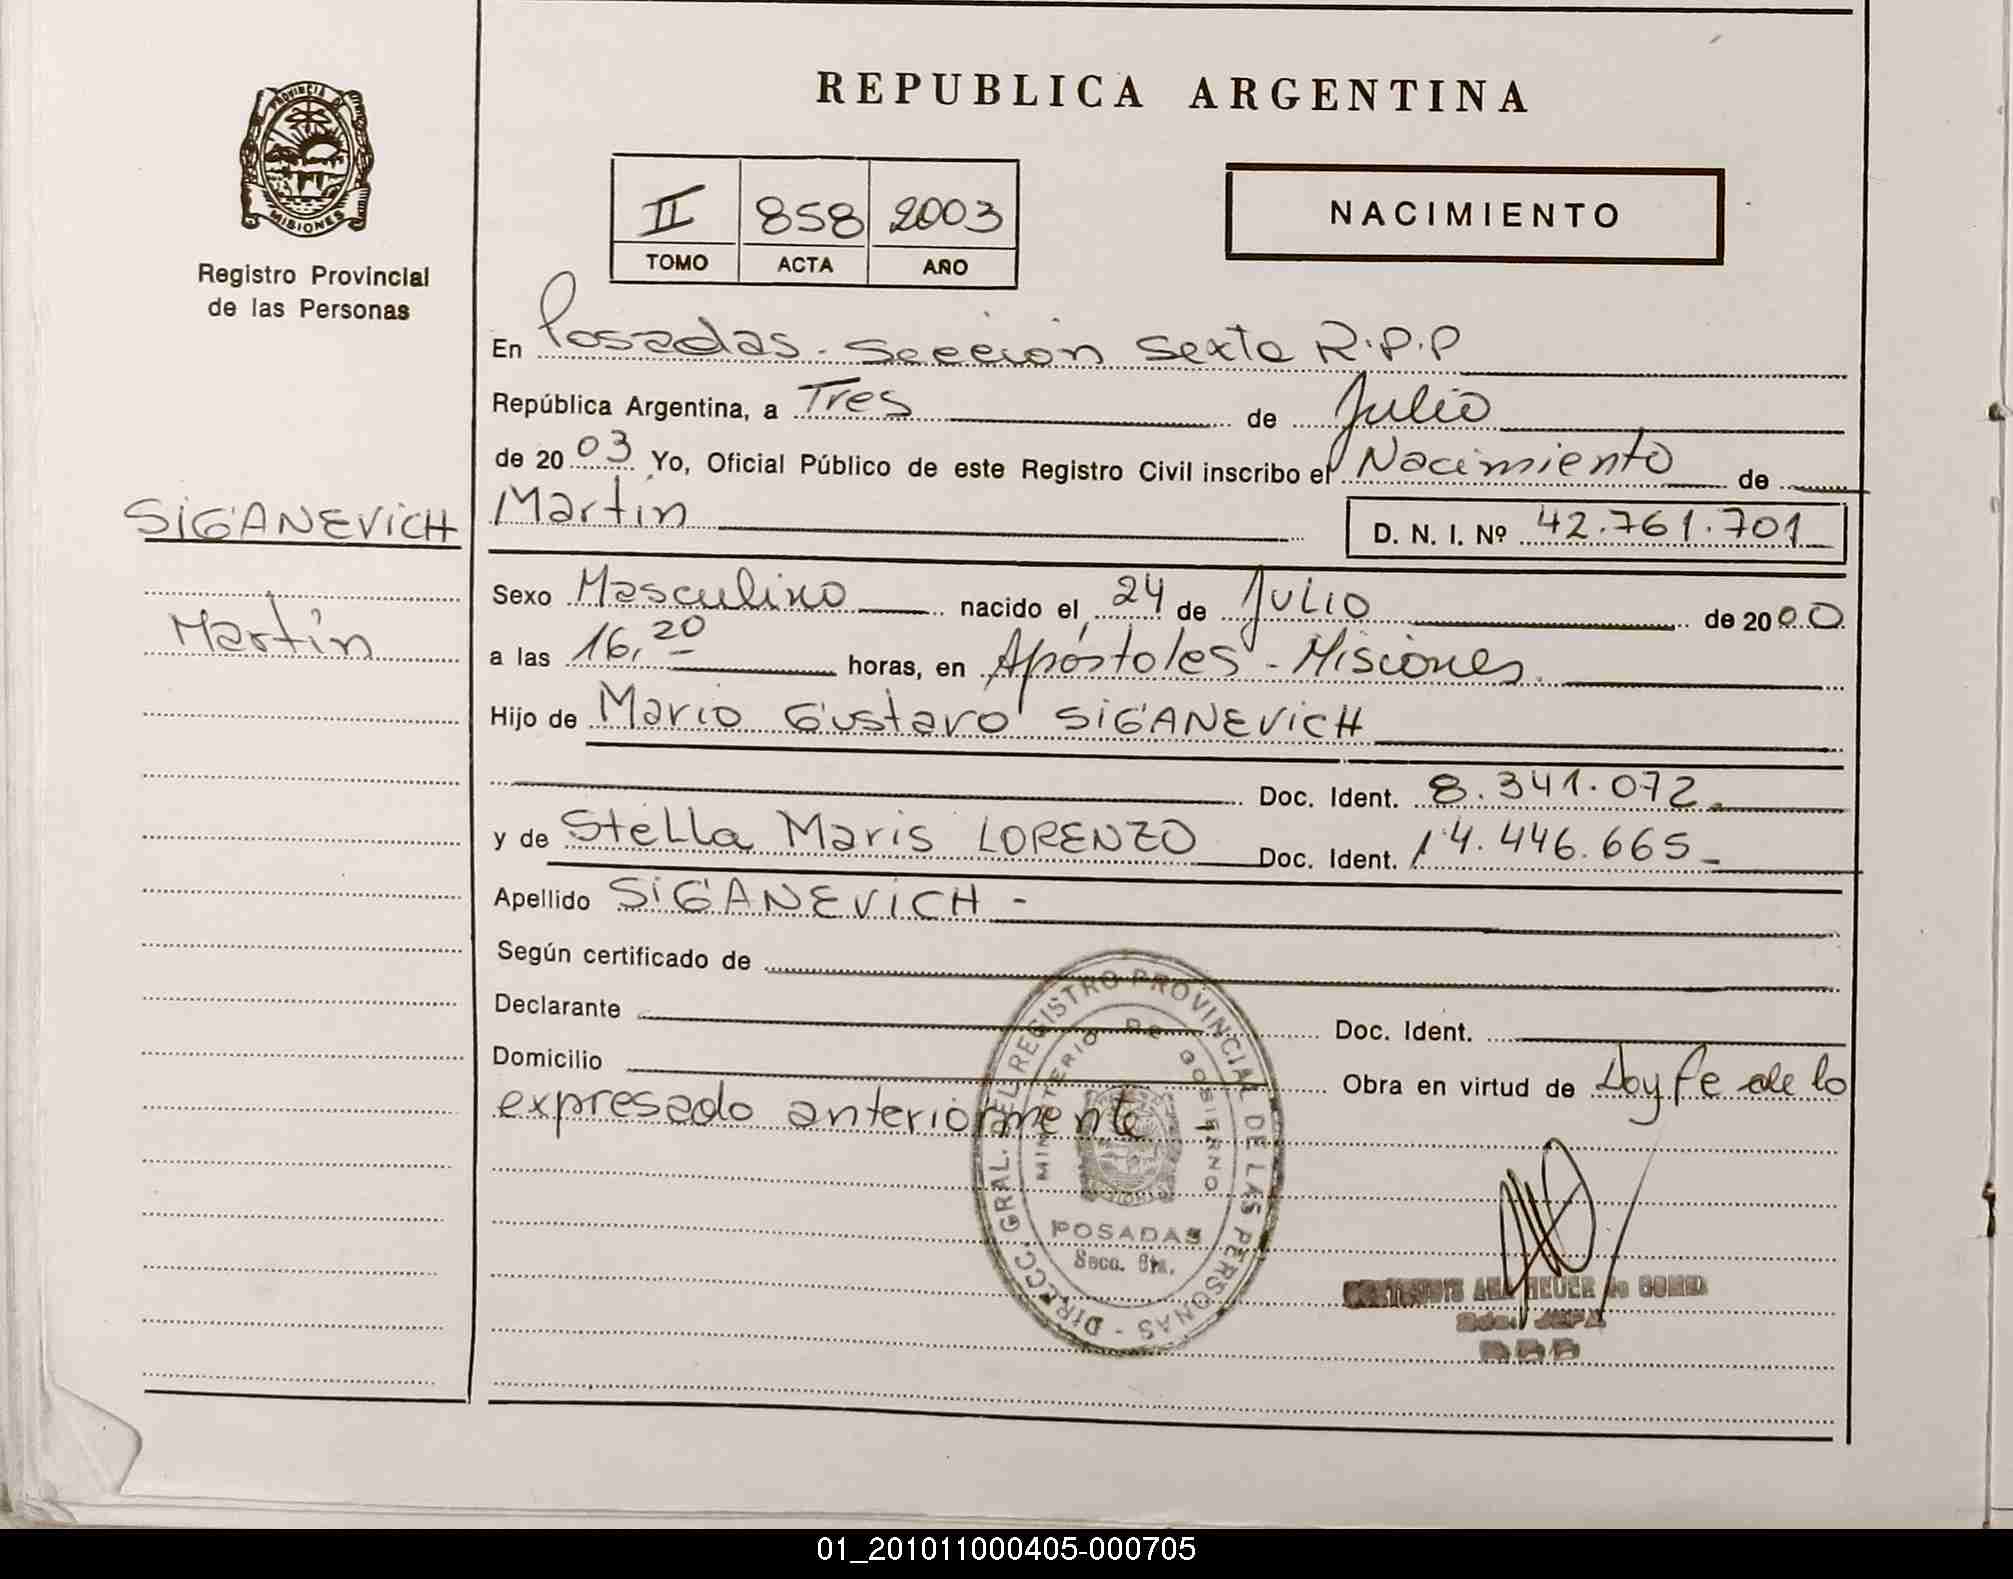 REPUBLICA ARGENTINA
PROVINCIA DE
MISIONES
Registro Provincial
de las Personas
II 858 2003
TOMO ACTA AÑO
NACIMIENTO
En Posadas - Sección Sexta R.P.P
República Argentina, a Tres de Julio
de 2003 Yo, Oficial Público de este Registro Civil inscribo el Nacimiento de
SIGANEVICH Martín D. N. I. Nº 42.761.701
Martín
Sexo Masculino nacido el 24 de JULIO de 2000
a las 16,20 horas, en Apóstoles - Misiones.
Hijo de Mario Gustavo SIGANEVICH
Doc. Ident. 8.341.072
y de Stella Maris LORENZO Doc. Ident. 14.446.665
Apellido SIGANEVICH -
Según certificado de
Declarante Doc. Ident.
Domicilio Obra en virtud de Doy fe de lo
expresado anteriormente
DIRECC. GRAL. DEL REGISTRO PROVINCIAL DE LAS PERSONAS -
MINISTERIO DE GOBIERNO
POSADAS
Secc. 6ta.
01_201011000405-000705